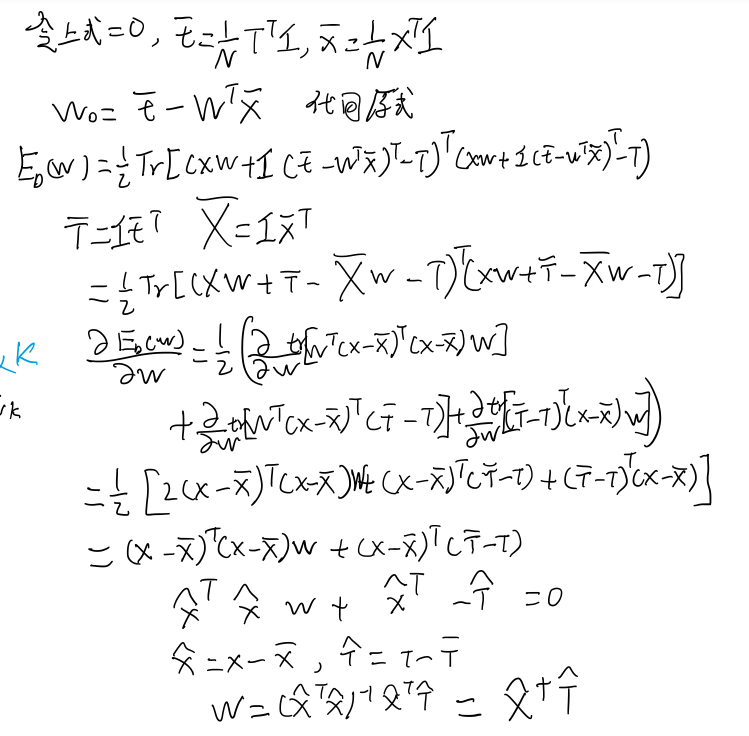 令上式=0, t̄=1/N TᵀI, x̄=1/N XᵀI
W₀= t̄ − Wᵀx̄ 代回原式
E_D(W)=1/2 Tr[(XW+I(t̄−Wᵀx̄)ᵀ−T)ᵀ(XW+1(t̄−Wᵀx̄)ᵀ−T)
T̄=I t̄ᵀ X̄=I x̄ᵀ
=1/2 Tr[(XW+T̄−X̄W−T)ᵀ(XW+T̄−X̄W−T)]
K
∂E_D(W)/∂W=1/2(∂/∂W tr[Wᵀ(X−X̄)ᵀ(X−X̄)W]
k
+∂/∂W tr[Wᵀ(X−X̄)ᵀ(T̄−T)]+∂/∂W tr[(T̄−T)ᵀ(X−X̄)W])
=1/2[2(X−X̄)ᵀ(X−X̄)W+(X−X̄)ᵀ(T̄−T)+(T̄−T)ᵀ(X−X̄)]
=(X−X̄)ᵀ(X−X̄)W+(X−X̄)ᵀ(T̄−T)
X̂ᵀX̂W+X̂ᵀ−T̂=0
X̂=X−X̄, T̂=T−T̄
W=(X̂ᵀX̂)⁻¹X̂ᵀT̂=X̂†T̂